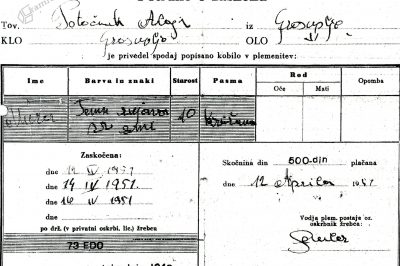 Tov. Potočnik Alojz iz Grosuplje
KLO Grosuplje OLO
je privedel spodaj popisano kobilo v plemenitev:
Ime Barva in znaki Starost Pasma Rod Opomba
Oče Mati
Temno 10
Zaskočena:
dne 12 IV 1951
dne 14 IV 1951
dne 16 IV 1951
dne
po drž. (v privatni oskrbi, lic.) žrebcu
73 EDO
Skočnina din 500-din plačana
dne 12 Aprila 1951
Vodja plem. postaje oz.
oskrbnik žrebca: